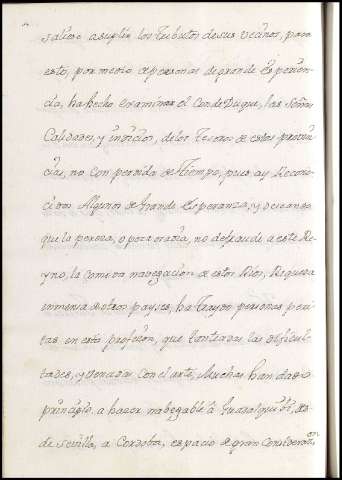 saliese a suplir los tributos de sus vecinos, para
esto, por medio de personas de grande Esperien-
cia, ha hecho examinar el Conde Duque, las Señas
Calidades, y indicios, de los Tesoros de estas provin-
cias, no con perdida de Tiempo, pues ay Recono-
cidos Algunos de Grande Esperanza, y Deseando
que la pereza, o poca osadia, no defraude a este Re-
yno, la comoda navegacion de estos Rios, Riqueza
inmensa de otros payses, ha traydo personas peri-
tas en esta profesion, que tanteadas las dificul-
tades, y vencidas Con el arte, Muchas han dado
principio a hacer nabegable â Guadalquibir, des-
de Sevilla, a Cordoba, espacio de gran Consideraz.on